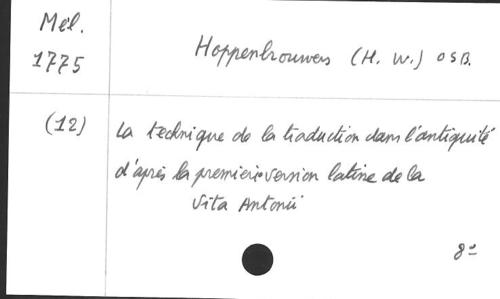 Mél.
1775
Hoppenbrouwers (H. W.) OSB.
(12)
La technique de la traduction dans l'antiquité
d'après la première version latine de la
Vita Antonii
8°